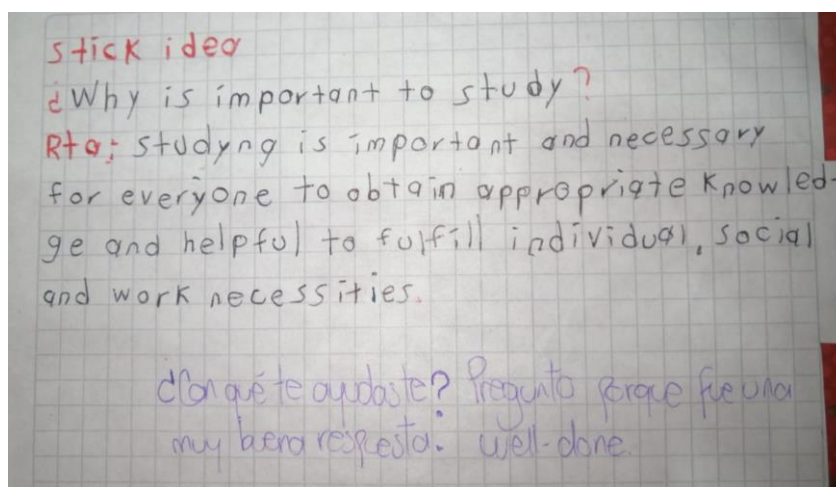 Stick idea
¿Why is important to study?
Rta: studyng is important and necessary
for everyone to obtain appropriate knowled-
ge and helpful to fulfill individual, social
and work necessities.
¿Con qué te ayudaste? Pregunto porque fue una
muy buena respuesta. Well-done.